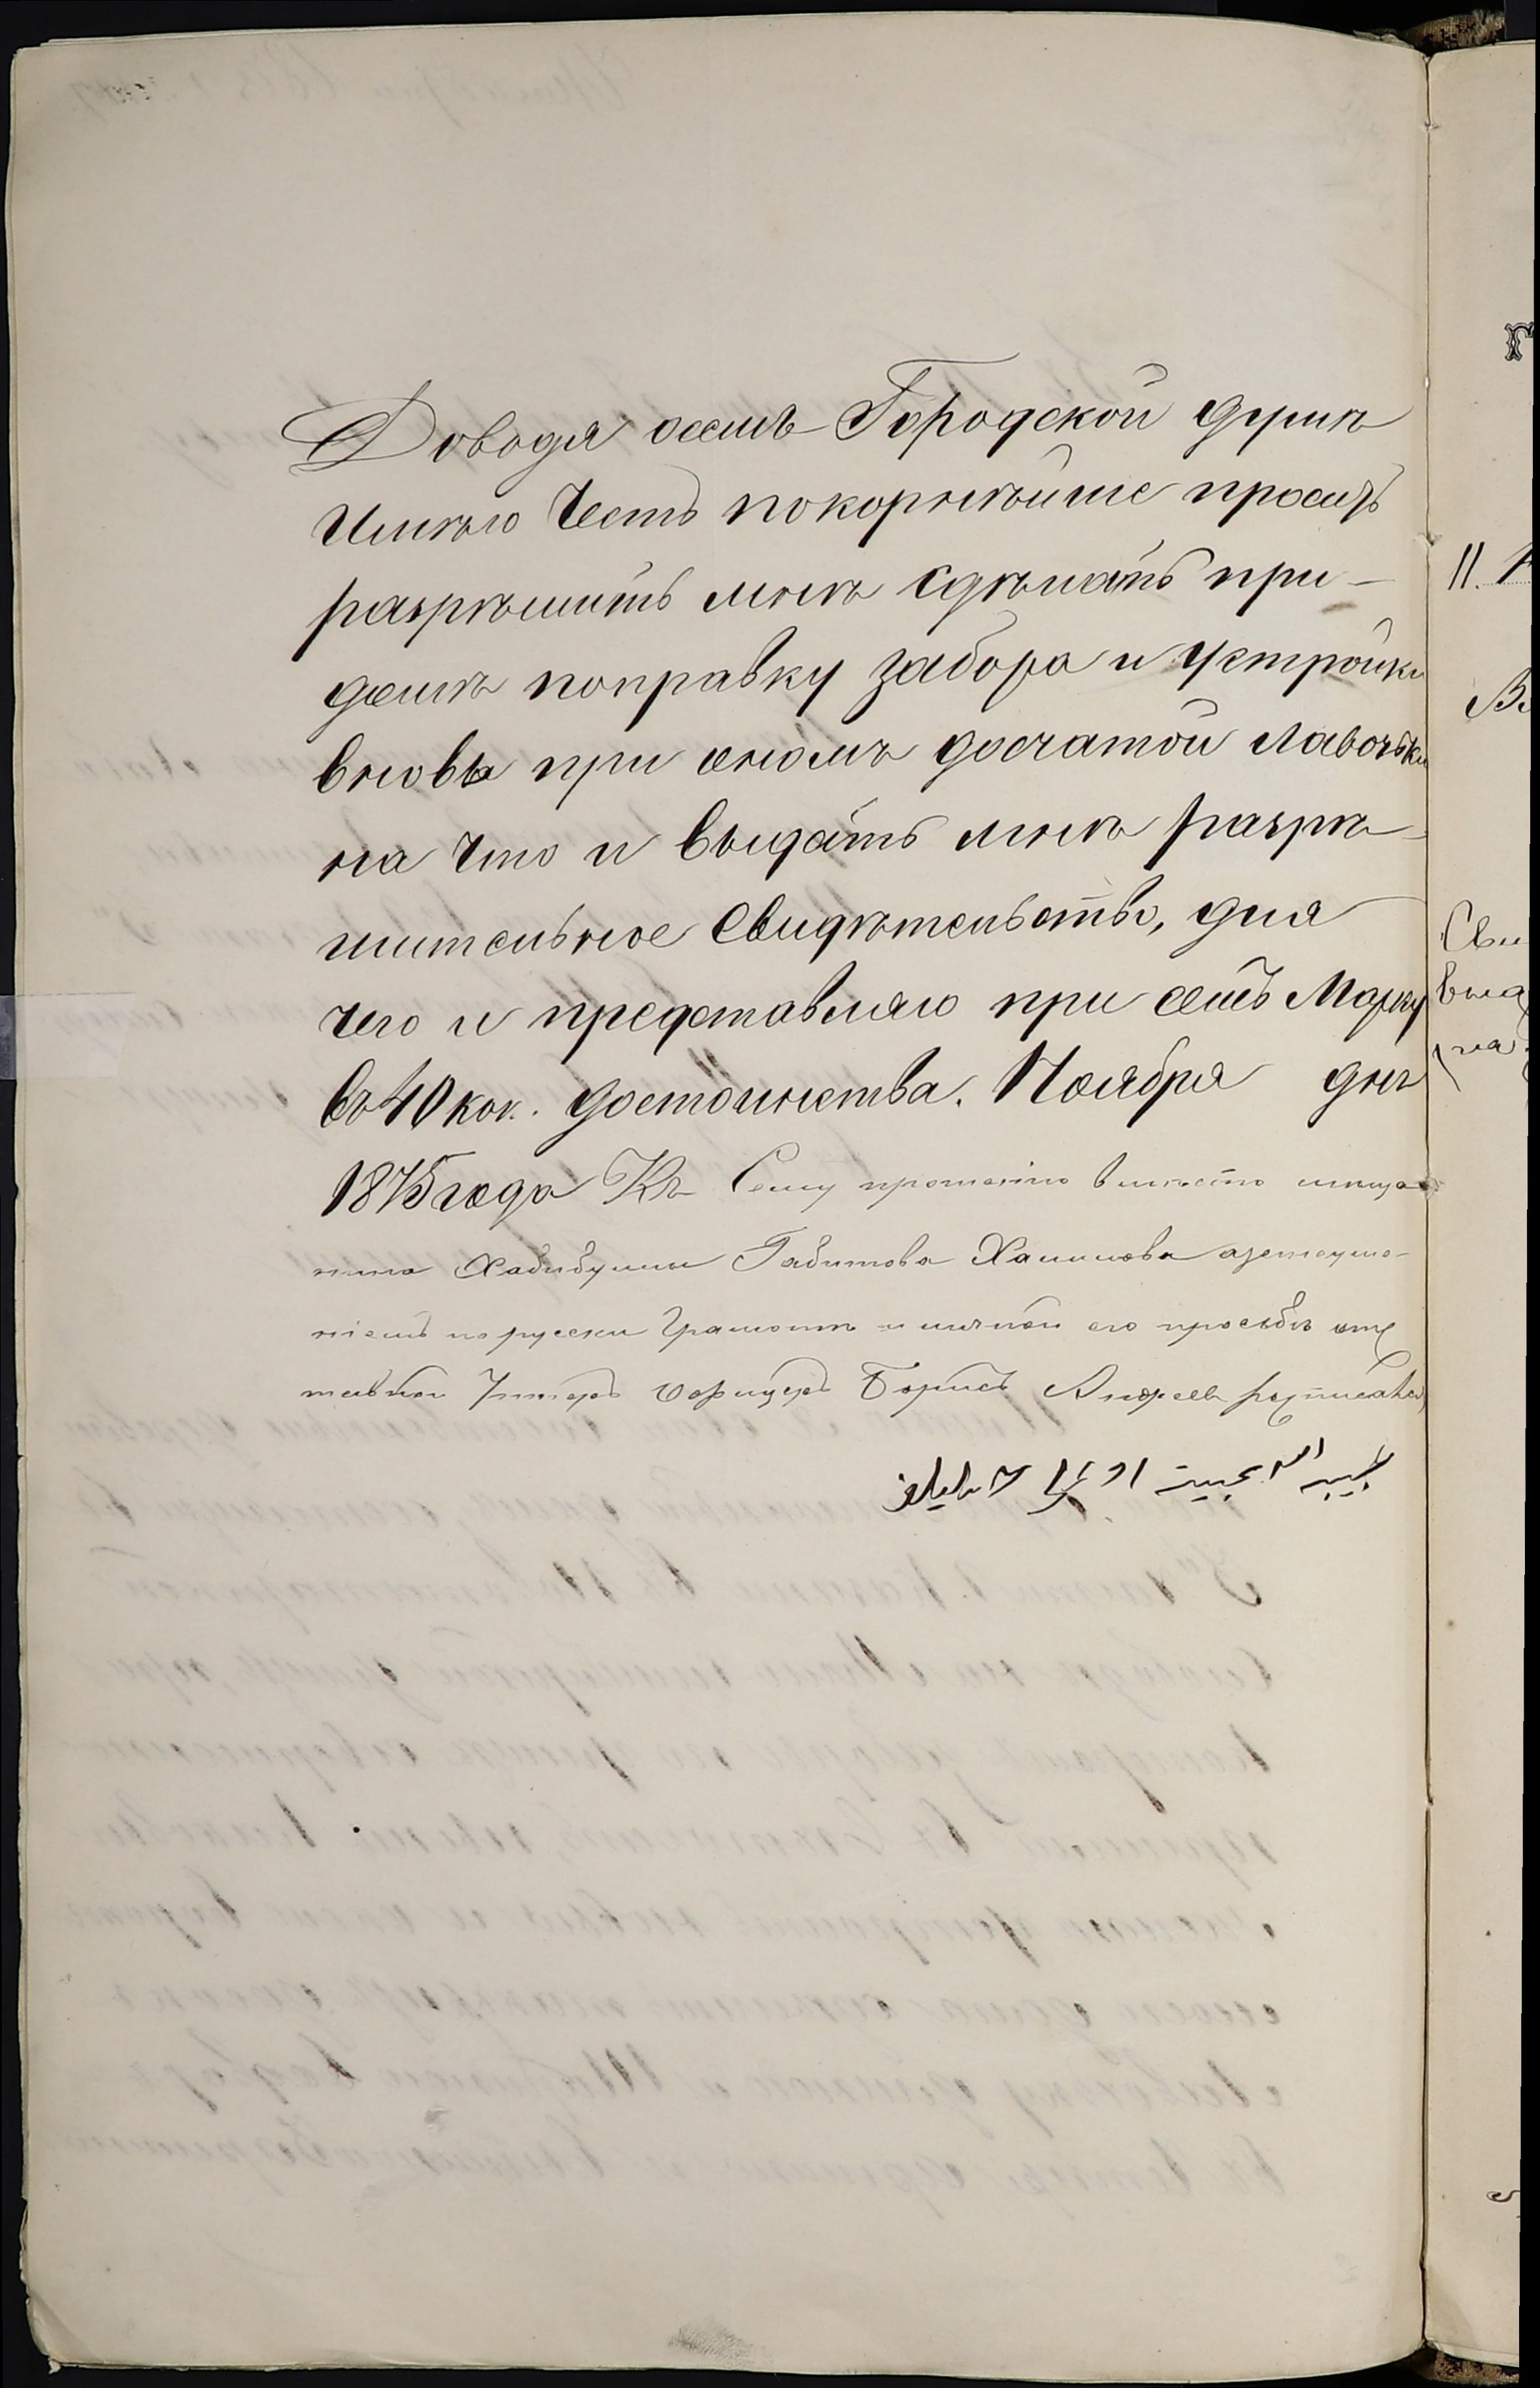 Доводя осемъ Городской думѣ
Имѣю Честь покорнѣйше просить
разрѣшить мнѣ Сдѣлать при-
домѣ поправку забора и устройки
вновь при ономъ досчатой лавочьки
на что и выдать мнѣ разрѣ-
шительное Свидѣтельство, для
чего и представляю при семъ Марку
въ 40 коп. достоинства. Ноября дня
1875 года Къ Сему прошенію вмѣсто мѣща-
нина Хабибуллы Габитова Халилова
ніемъ по русски Грамотѣ и личной его прозьбѣ отс
тавной Унтеръ Офицеръ Борисъ Андреевъ росписався
11.
Сви
выда
на